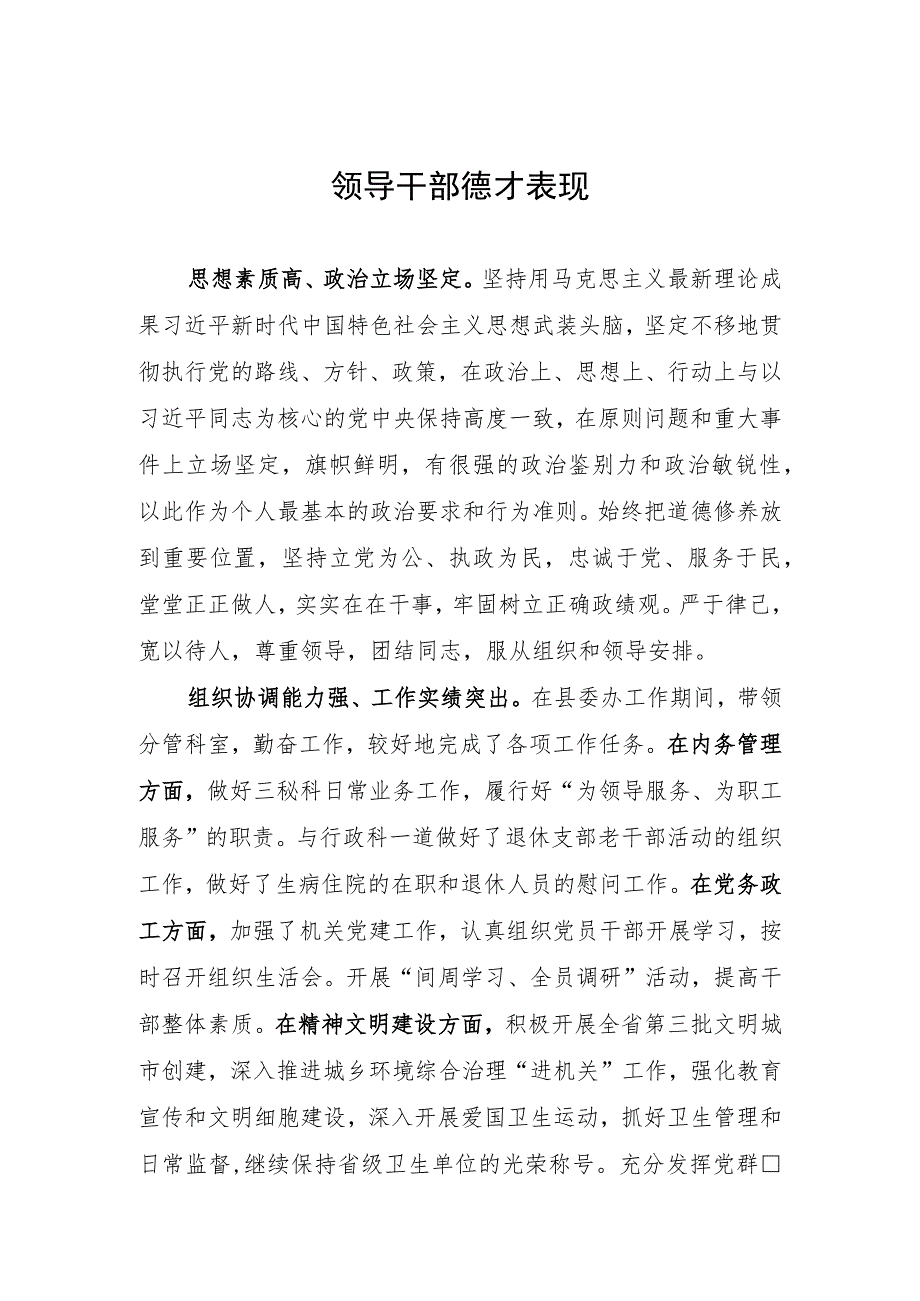 领导干部德才表现
思想素质高、政治立场坚定。坚持用马克思主义最新理论成
果习近平新时代中国特色社会主义思想武装头脑，坚定不移地贯
彻执行党的路线、方针、政策，在政治上、思想上、行动上与以
习近平同志为核心的党中央保持高度一致，在原则问题和重大事
件上立场坚定，旗帜鲜明，有很强的政治鉴别力和政治敏锐性，
以此作为个人最基本的政治要求和行为准则。始终把道德修养放
到重要位置，坚持立党为公、执政为民，忠诚于党、服务于民，
堂堂正正做人，实实在在干事，牢固树立正确政绩观。严于律己，
宽以待人，尊重领导，团结同志，服从组织和领导安排。
组织协调能力强、工作实绩突出。在县委办工作期间，带领
分管科室，勤奋工作，较好地完成了各项工作任务。在内务管理
方面，做好三秘科日常业务工作，履行好“为领导服务、为职工
服务”的职责。与行政科一道做好了退休支部老干部活动的组织
工作，做好了生病住院的在职和退休人员的慰问工作。在党务政
工方面，加强了机关党建工作，认真组织党员干部开展学习，按
时召开组织生活会。开展“间周学习、全员调研”活动，提高干
部整体素质。在精神文明建设方面，积极开展全省第三批文明城
市创建，深入推进城乡环境综合治理“进机关”工作，强化教育
宣传和文明细胞建设，深入开展爱国卫生运动，抓好卫生管理和
日常监督,继续保持省级卫生单位的光荣称号。充分发挥党群□